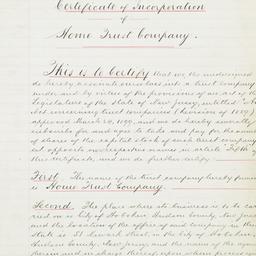 Certificate of Incorporation
of
Home Trust Company.
This is to Certify that we the undersigned
do hereby associate ourselves into a trust company
under and by virtue of the provisions of an act of the
Legislature of the State of New Jersey, entitled "An
Act concerning trust companies (Revision of 1899)"
approved March 24, 1899, and we do hereby severally
subscribe for and agree to take and pay for the amount
of shares of the capital stock of such trust company
set opposite our respective names in article Fifth of
this certificate, and we do further certify
First. The name of the trust company hereby formed
is Home Trust Company.
Second. The place where its business is to be car
ried on is City of Hoboken Hudson County, New Jersey
and the location of the office of said company in this
State is Newark Street, in the City of Hoboken
Hudson County, New Jersey, and the name of the agent
therein and in charge thereof upon whom process against